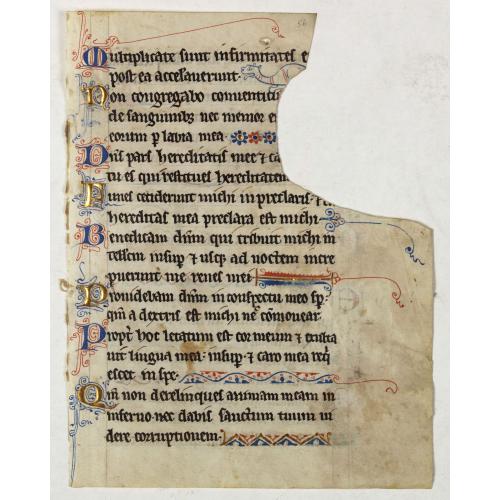 56
Multiplicate sunt infirmitates e
post ea accelauerunt.
Non congregabo conuenticu
de sanguinibꝫ nec memor e
eorum p labia mea.
Dñs pars hereditatis mee & ca
tu es qui restitues hereditatem
Funes ceciderunt michi in preclaris. &
hereditas mea preclara est michi.
Benedicam dñm qui tribuit michi in
tellcm insup & usqꝫ ad noctem incre
puerunt me renes mei
Prouidebam dñm in conspectu meo sp
qm̄ a dextris est michi ne cōmouear
Propt hoc letatum est cor meum & exulta
uit lingua mea. insup & caro mea reqi
escet in spe.
Qm̄ non derelinques animam meam in
inferno. nec dabis sanctum tuum ui
dere corruptionem.